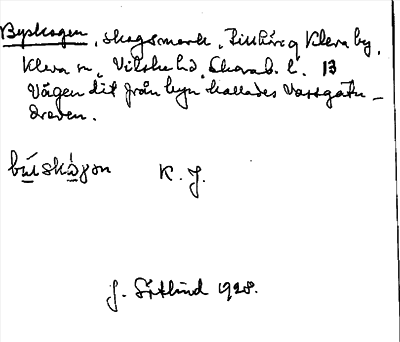 Byskogen, skogsmark, tillhörig Kleva by,
Kleva sn, Vilske hd, Skarab. l. 13
Vägen dit från byn kallades Vassgatu-
dreven.
bu̲i̲skå̲gɔn K. J.
J. Götlind 1928.